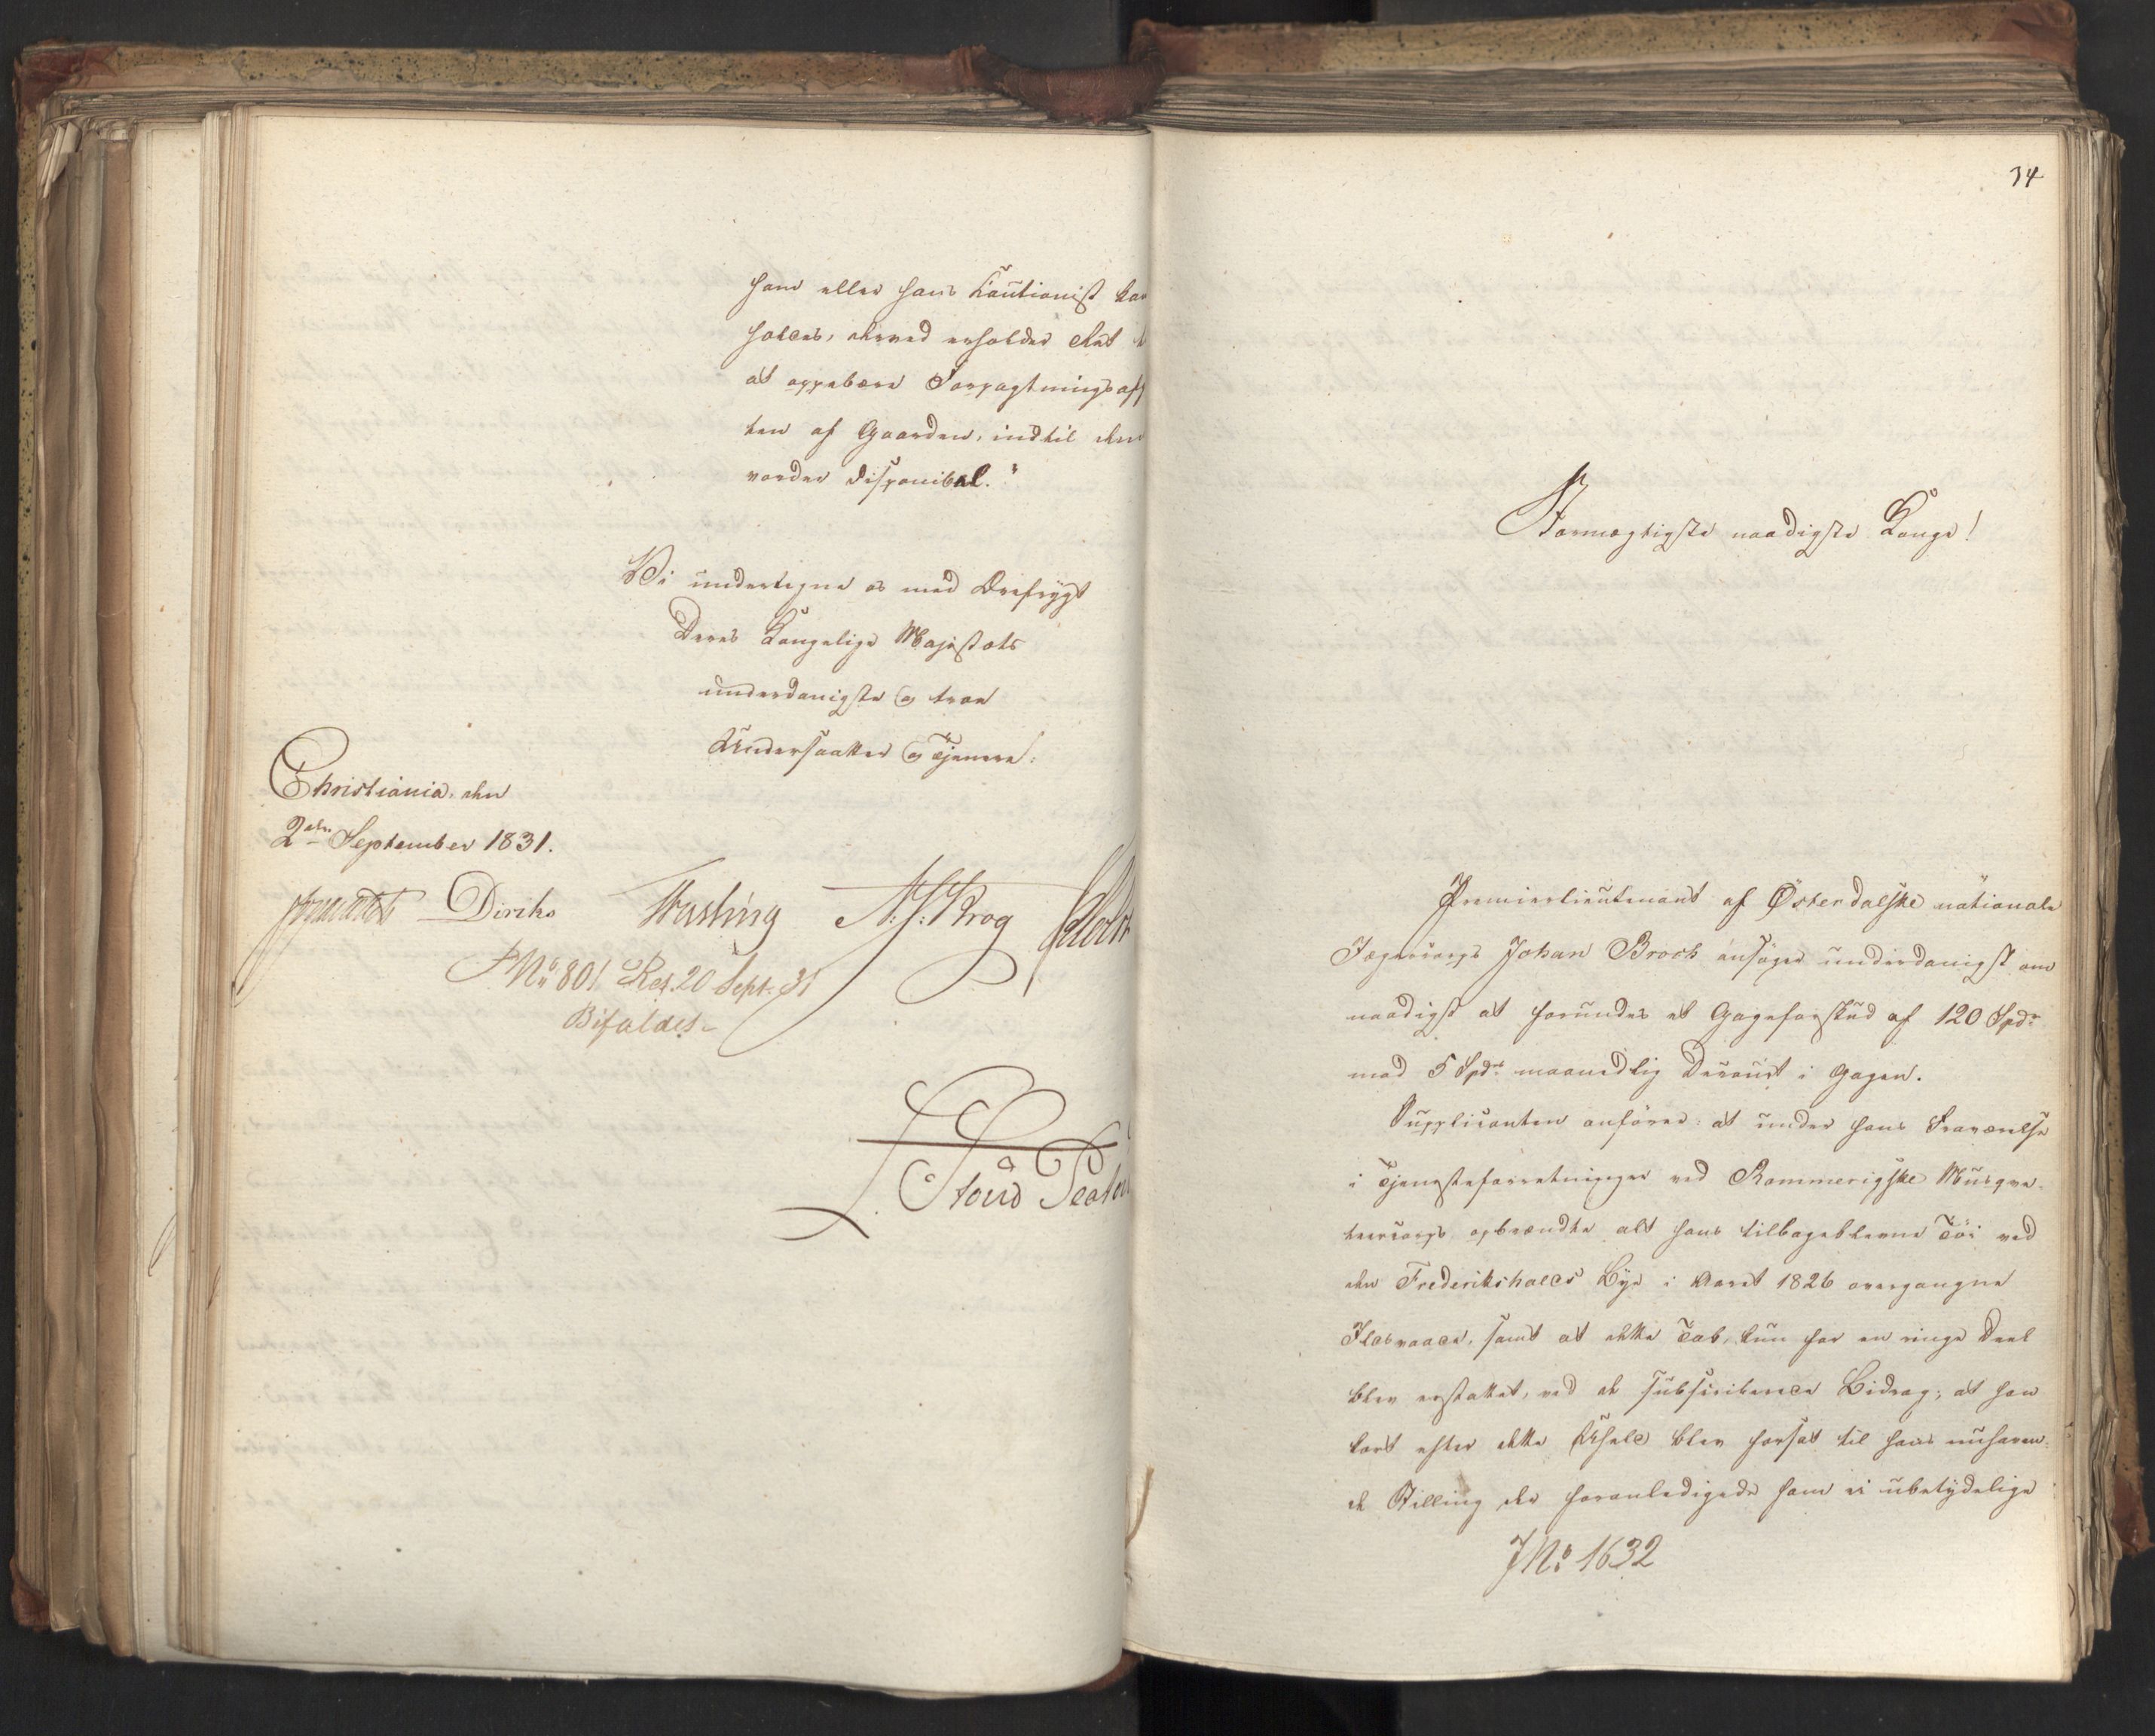 ham eller hans Kautionist kan
holdes, derved erholder Ret
at oppebære Forpagtningsaf
ten af Gaarden, indtil den
vorder disponibel."
Vi undertegne os med Ærefrygt
Deres Kongelige Majestæts
underdanigste og troe
Undersaatter og Tjenere.
Christiania, den
2den September 1831.
Diriks Fasting N. J. Krog
No 801 Res. 20 Sept. 31
Bifaldes
34
Stormægtigste naadigste Konge!
Premierlieutenant af Østerdalske nationale
Jægercorps Johan Brock ansøger underdanigst om
naadigst at forundes et Gageforskud af 120 Spdr
mod 5 Spdrs maanedlig Decourt i Gagen.
Supplicanten anfører: at under hans Fraværelse
i Tjenesteforretninger ved Rommerigske Musqve-
teercorps opbrændte alt hans tilbageblevne Töi ved
den Frederikshalds Bye i Aaret 1826 overgangne
Ildsvaade, samt at dette Tab, kun for en ringe Deel
blev erstattet, ved de subscriberede Bidrag; at han
kort efter dette Uheld blev forsat til hans nuhaven-
de Stilling der foranledigede ham ei ubetydelige
JNo 1632